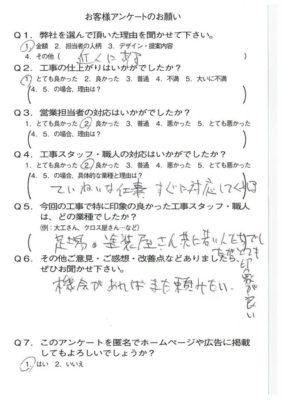 お客様アンケートのお願い
Q1. 弊社を選んで頂いた理由を聞かせて下さい。
1. 金額 2. 担当者の人柄 3. デザイン・提案内容
4. その他( 近くにある )
Q2. 工事の仕上がりはいかがでしたか?
1. とても良かった 2. 良かった 3. 普通 4. 不満 5. 大いに不満
4. 5. の場合、理由は?
Q3. 営業担当者の対応はいかがでしたか?
1. とても良かった 2. 良かった 3. 普通 4. 悪かった 5. とても悪かった
4. 5. の場合、理由は?
Q4. 工事スタッフ・職人の対応はいかがでしたか?
1. とても良かった 2. 良かった 3. 普通 4. 悪かった 5. とても悪かった
4. 5. の場合、具体的な業種と理由は?
ていねいな仕事 すぐに対応してくれる
Q5. 今回の工事で特に印象の良かった工事スタッフ・職人
は、どの業種でしたか?
(例:大工さん、クロス屋さん…など)
足場。塗装屋さん共に若い人
印象が良い
Q6. その他ご意見・ご感想・改善点などありましたら、
ぜひお聞かせ下さい。
機会があればまた頼みたい。
Q7. このアンケートを匿名でホームページや広告に掲載
してもよろしいでしょうか?
1. はい 2. いいえ